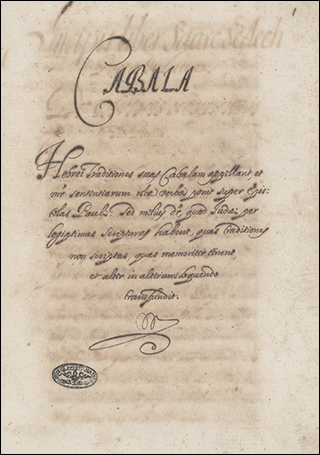 CABALA
Hebrei Traditiones suas Cabalam appellant et
sententiarum verba ponit super Epis:
tolas Pauli. Sed melius dr. quod Iudæi per
legiptimas Scripturas habent, quas traditiones
non scriptas, quas memoriter tenent
et alter in alterum loquendo
transfundit.